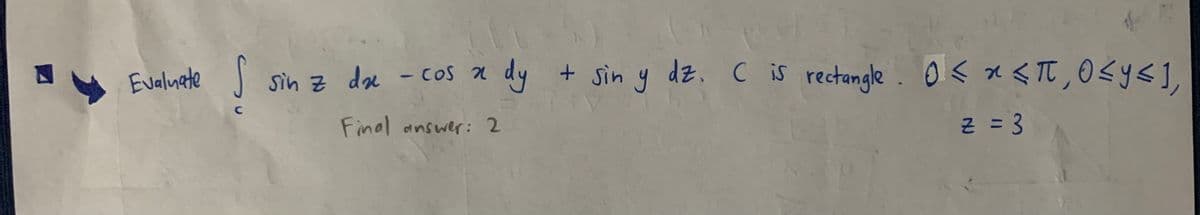 Evaluate ∫c sin z dx - cos x dy + sin y dz. C is rectangle. 0 ≤ x ≤ π, 0 ≤ y ≤ 1,
z = 3
Final answer: 2